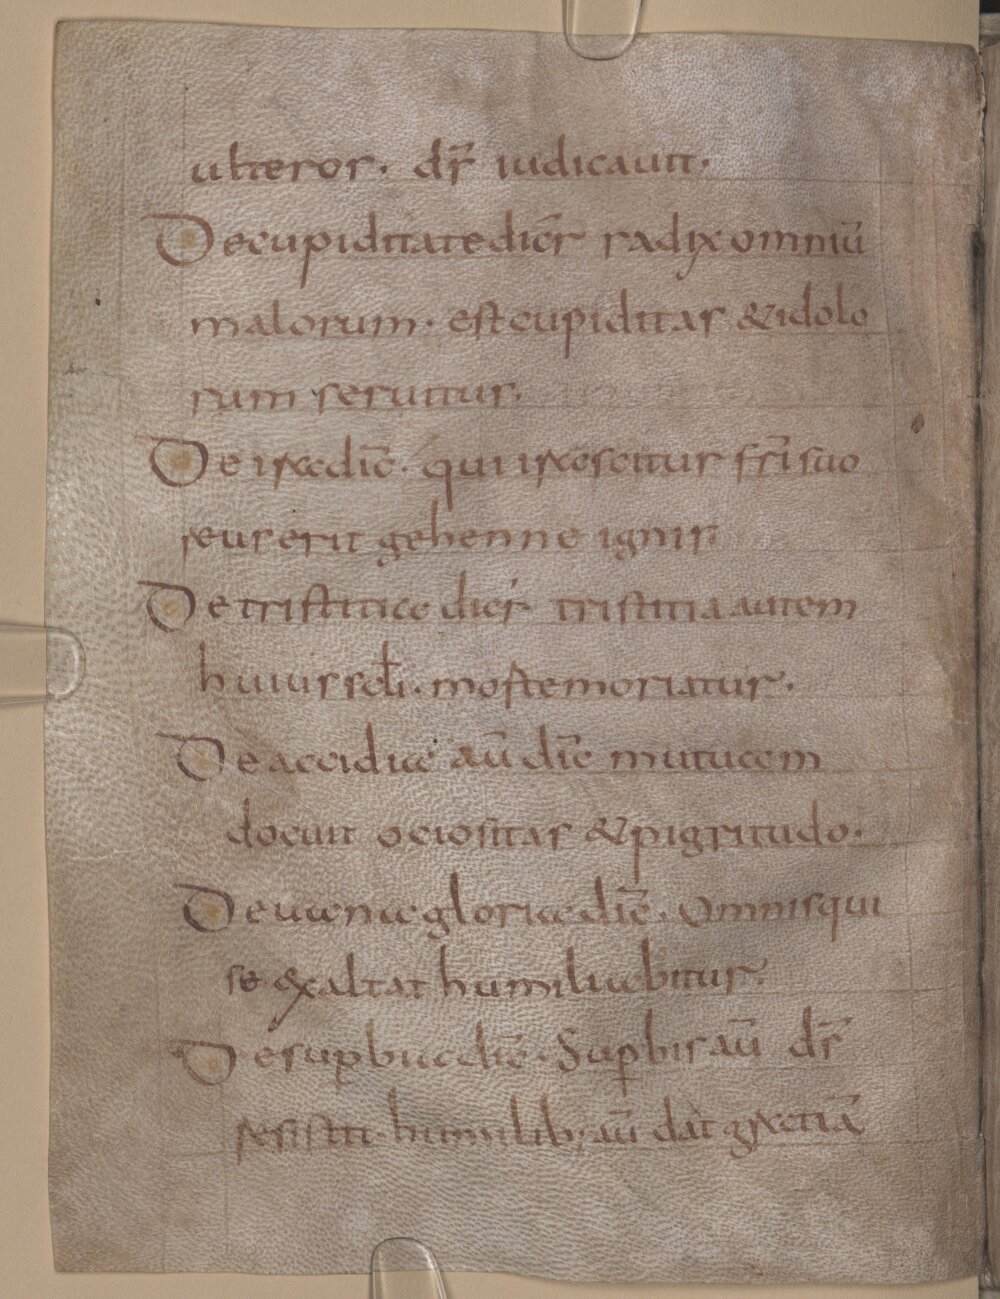 ulteros. d̄s iudicauit.
Decupiditatedic̄r radix omniū
malorum. est cupiditas &idolo
rum seruitus.
De iracdic̄. qui irascitur fr̄i suo
reus erit gehenne ignis.
De tristitia dic̄r tristitia autem
huius sc̄li. mortemoriatur.
De accidia aū dic̄ mutucem
docuit ociositas & pigritudo.
Deuana gloria dic̄. Omnisqui
se exaltat humiliabitur.
Desuꝑbia dic̄. Suꝑbis aū d̄s
resistit. humilib; aū dat gratiā